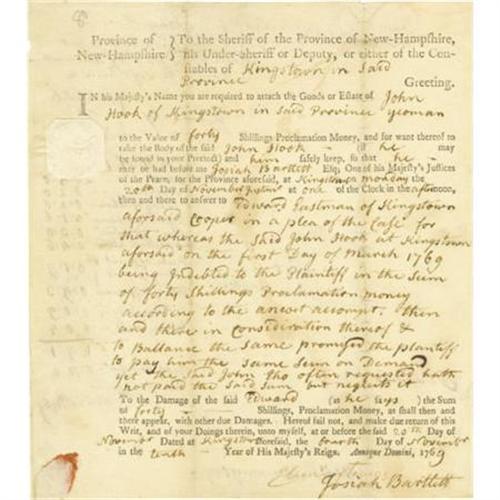 8
Province of } To the Sheriff of the Province of New-Hampshire,
New-Hampshire } his Under-Sheriff or Deputy, or either of the Con-
stables of Kingstown in Said
Province Greeting.
IN his Majesty's Name you are required to attach the Goods or Estate of John
Hook of Kingstown in Said Province yeoman
to the Value of forty Shillings Proclamation Money, and for want thereof to
take the Body of the said John Hook (if he may
be found in your Precinct) and him safely keep, so that he
may be had before me Josiah Bartlett Esq; One of his Majesty's Justices
of the Peace, for the Province aforesaid, at Kingstown on monday the
20th Day of November Instant at one of the Clock in the afternoon,
then and there to answer to Edward Eastman of Kingstown
aforsaid Cooper in a plea of the Case for
that whereas the Said John Hook at Kingstown
aforsaid on the first Day of March 1769
being Indebted to the Plaintiff in the Sum
of forty Shillings Proclamation money
according to the anext accompt. then
and there in Consideration thereof &
to Ballance the Same promised the plaintiff
to pay him the Same Sum on Demand
yet the Said John tho often requested hath
not paid the Said Sum but neglects it
To the Damage of the said Edward (as he says) the Sum
of forty Shillings, Proclamation Money, as shall then and
there appear, with other due Damages. Hereof fail not, and make due return of this
Writ, and of your Doings therein, unto myself, at or before the said 20th Day of
November Dated at Kingstown aforesaid, the fourth Day of November
in the tenth Year of His Majesty's Reign. Annoque Domini, 1769
Josiah Bartlett